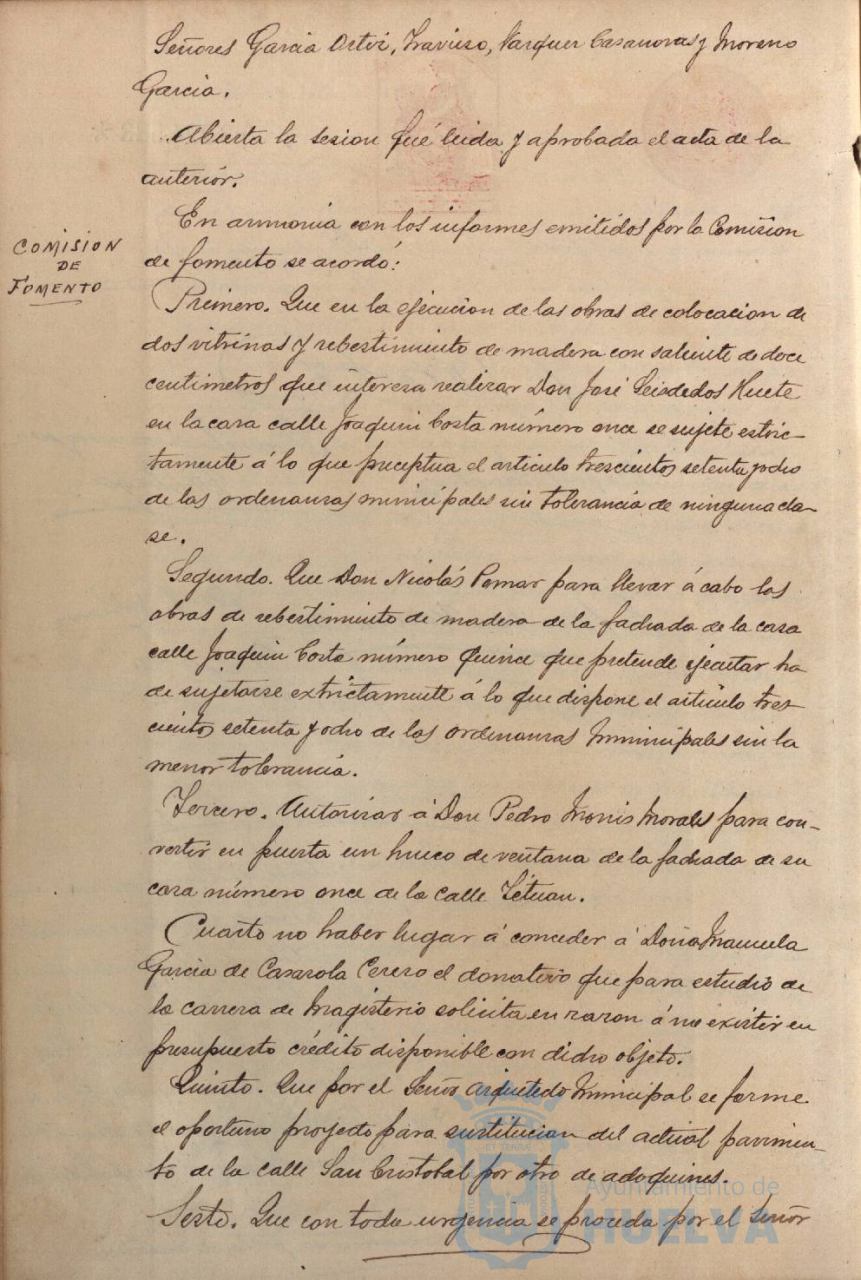 Señores Garcia Ortiz, Travieso, Vazquez Casanovas y Moreno
Garcia.
Abierta la sesion fué leida y aprobada el acta de la
anterior.
COMISION
DE
FOMENTO
En armonia con los informes emitidos por la Comision
de fomento se acordó:
Primero. Que en la ejecucion de las obras de colocacion de
dos vitrinas y rebestimiento de madera con saliente de doce
centimetros que interesa realizar Don José Seisdedos Huete
en la casa calle Joaquin Costa número once se sujete estric-
tamente á lo que preceptua el articulo trescientos setenta y ocho
de las ordenanzas municipales sin tolerancia de ninguna cla-
se.
Segundo. Que Don Nicolás Pomar para llevar á cabo las
obras de rebestimiento de madera de la fachada de la casa
calle Joaquin Costa número quince que pretende ejecutar ha
de sujetarse extrictamente á lo que dispone el articulo tres-
cientos setenta y ocho de las ordenanzas Municipales sin la
menor tolerancia.
Tercero. Autorizar á Don Pedro Monis Morales para con-
vertir en puerta un hueco de ventana de la fachada de su
casa número once de la calle Tetuan.
Cuarto no haber lugar á conceder á Doña Manuela
Garcia de Casasola Cerezo el donativo que para estudio de
la carrera de Magisterio solicita en razon á no existir en
presupuesto crédito disponible con dicho objeto.
Quinto. Que por el Señor Arquitecto Municipal se forme
el oportuno proyecto para sustitucion del actual pavimen-
to de la calle San Cristobal por otro de adoquines.
Sesto. Que con toda urgencia se proceda por el Señor
Ayuntamiento de
HUELVA